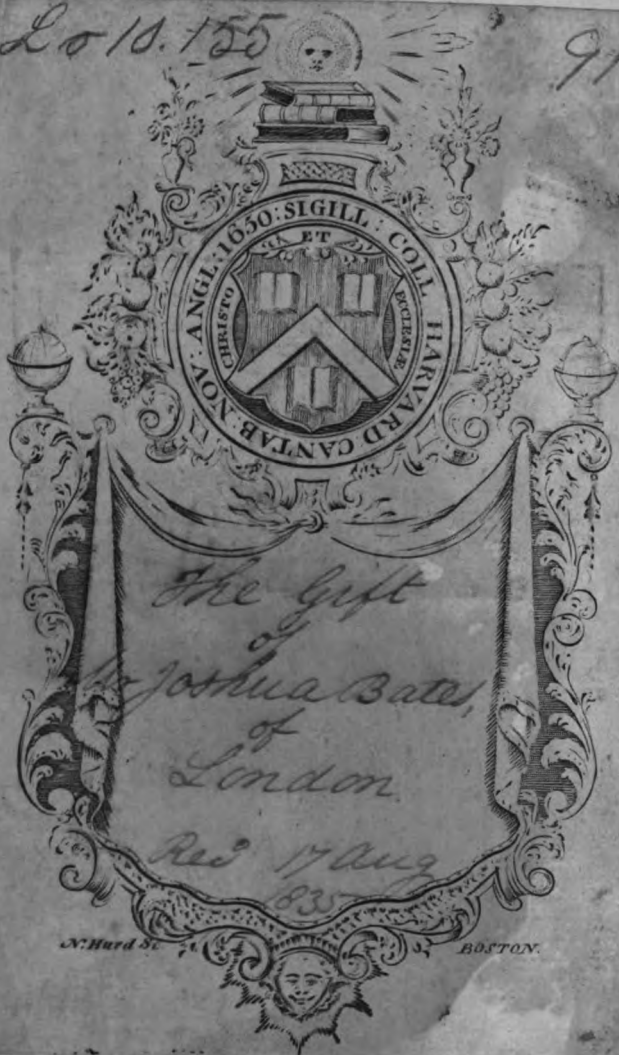 10.155
91
SIGILL: COLL HARVARD CANTAB: NOV: ANGL: 1650:
ET
CHRISTO
ECCLESIÆ
The Gift
of
Mr Joshua Bates,
of
London
Recd 17 Aug
1835
N. Hurd Sc.
BOSTON.